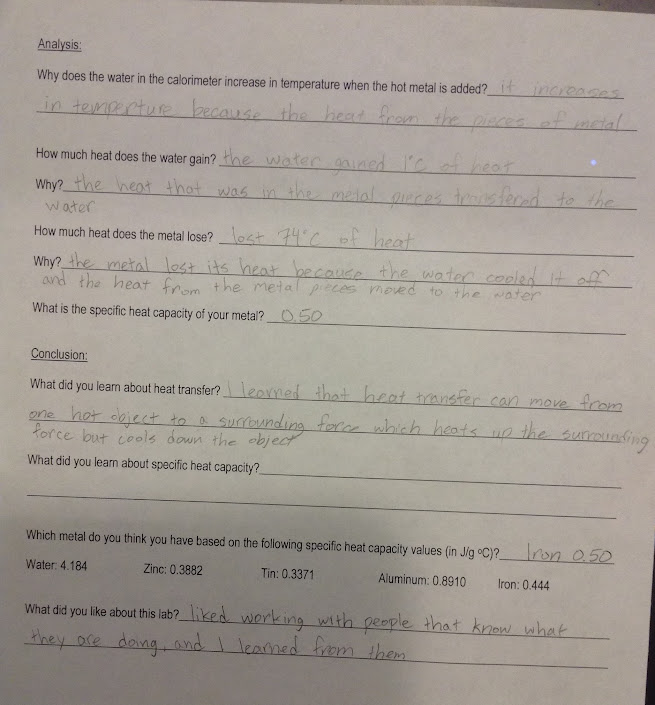 Analysis:
Why does the water in the calorimeter increase in temperature when the hot metal is added? it increases
in temperture because the heat from the pieces of metal
How much heat does the water gain? the water gained 1°C of heat
Why? the heat that was in the metal pieces transferd to the
water
How much heat does the metal lose? lost 74°C of heat
Why? the metal lost its heat because the water cooled it off
and the heat from the metal pieces moved to the water
What is the specific heat capacity of your metal? 0.50
Conclusion:
What did you learn about heat transfer? I learned that heat transfer can move from
one hot object to a surrounding force which heats up the surrounding
force but cools down the object
What did you learn about specific heat capacity?
Which metal do you think you have based on the following specific heat capacity values (in J/g °C)? Iron 0.50
Water: 4.184 Zinc: 0.3882 Tin: 0.3371 Aluminum: 0.8910 Iron: 0.444
What did you like about this lab? liked working with people that know what
they are doing, and I learned from them